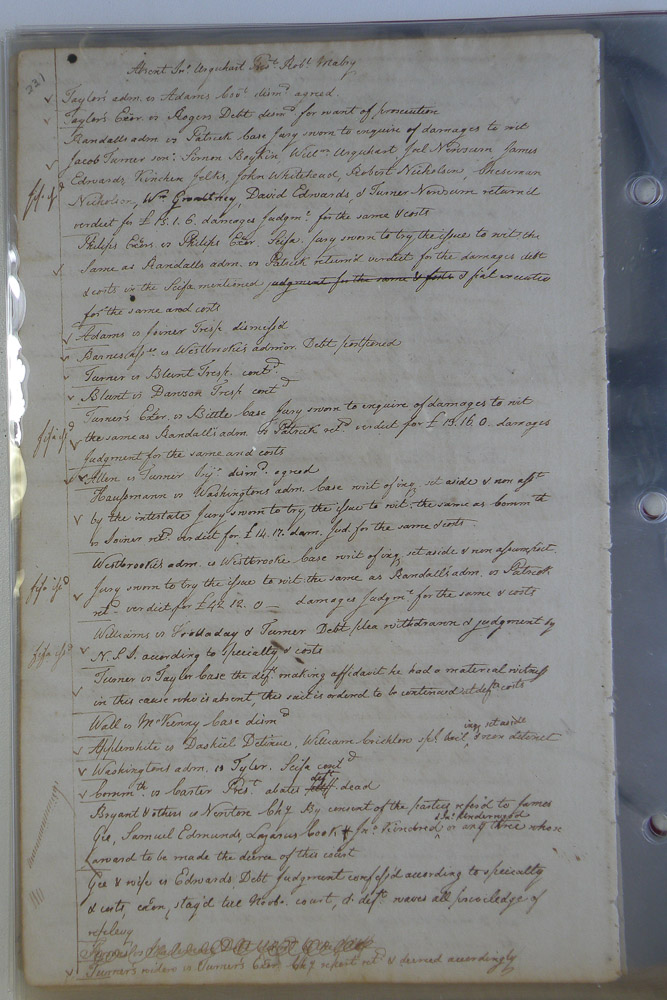 231
Absent Jno. Urquhart Prst. Robt. Mabry
Taylor's adm. vs Adams Covt. dismd. agreed.
Taylor's Exor. vs Rogers Debt dismd. for want of prosecution
Randalls adm vs Patrick Case Jury sworn to enquire of damages to wit
Jacob Turner son. Simon Boykin Willm. Urquhart Jul Newsum James
Edwards, Kinchen Jelks, John Whitehead, Robert Nicholson, Shearman
Nicholson, Wm. David Edwards & Turner Newsum return'd
verdict for £15.1.6. damages Judgmt. for the same & costs
Philips Exors. vs Philips Exor. Scifa. Jury sworn to try the issue to wit the
same as Randalls adm. vs Patrick return'd verdict for the damages debt
& costs in the Scifa mentioned judgment for the same & costs
for the same and costs
Adams vs Joiner Tresp. dismiss'd
Barnes vs Westbrooke's admor. Debt postponed
Turner vs Blunt Tresp. contd.
Blunt vs Dawson Tresp contd
Turner's Exor. vs Bittle Case Jury sworn to enquire of damages to wit
the same as Randall's adm. vs Patrick retd. verdict for £13.16.0. damages
Judgment for the same and costs
Allen vs Turner Inj. dismd. agreed
Haussmann vs Washingtons adm. Case writ of inq. set aside & non asst.
by the intestate Jury sworn to try the issue to wit, the same as Commth
vs Joiner retd. verdict for £14.17. dam. Jud. for the same & costs
Westbrooke's adm. vs Westbrooke Case writ of inq. set aside & non assumpsit.
Jury sworn to try the issue to wit the same as Randall's adm. vs Patrick
retd. verdict for £42.12.0 damages Judgmt for the same & costs
Williams vs & Turner Debt plea withdrawn & judgment by
N.S.I. according to Specialty & costs
Turner vs Taylor Case the deft. making affidavit he had a material witness
in this cause who is absent, this suit is ordered to be continued at defts costs
Wall vs McKenny Case dismd
inq. set aside
Applewhite vs Daskiel Detinue, William Crichlow spl. bail, & non detinet
Washingtons adm. vs Tyler. Scifa contd
Commth vs Carter Prest. abates deft dead
Bryant & others vs Newton Chy By consent of the parties refer'd to James
Gee, Samuel Edmunds, Lazarus Cook & Jno. Kindred or any three whose
award to be made the decree of this court
Gee & wife vs Edwards, Debt Judgment confess'd according to specialty
& costs, exon. stay'd till Novbr. court, & deft. waves all priviledge of
replevy
Turner's vs Turner's Exor. Chy report retd. & decreed accordingly